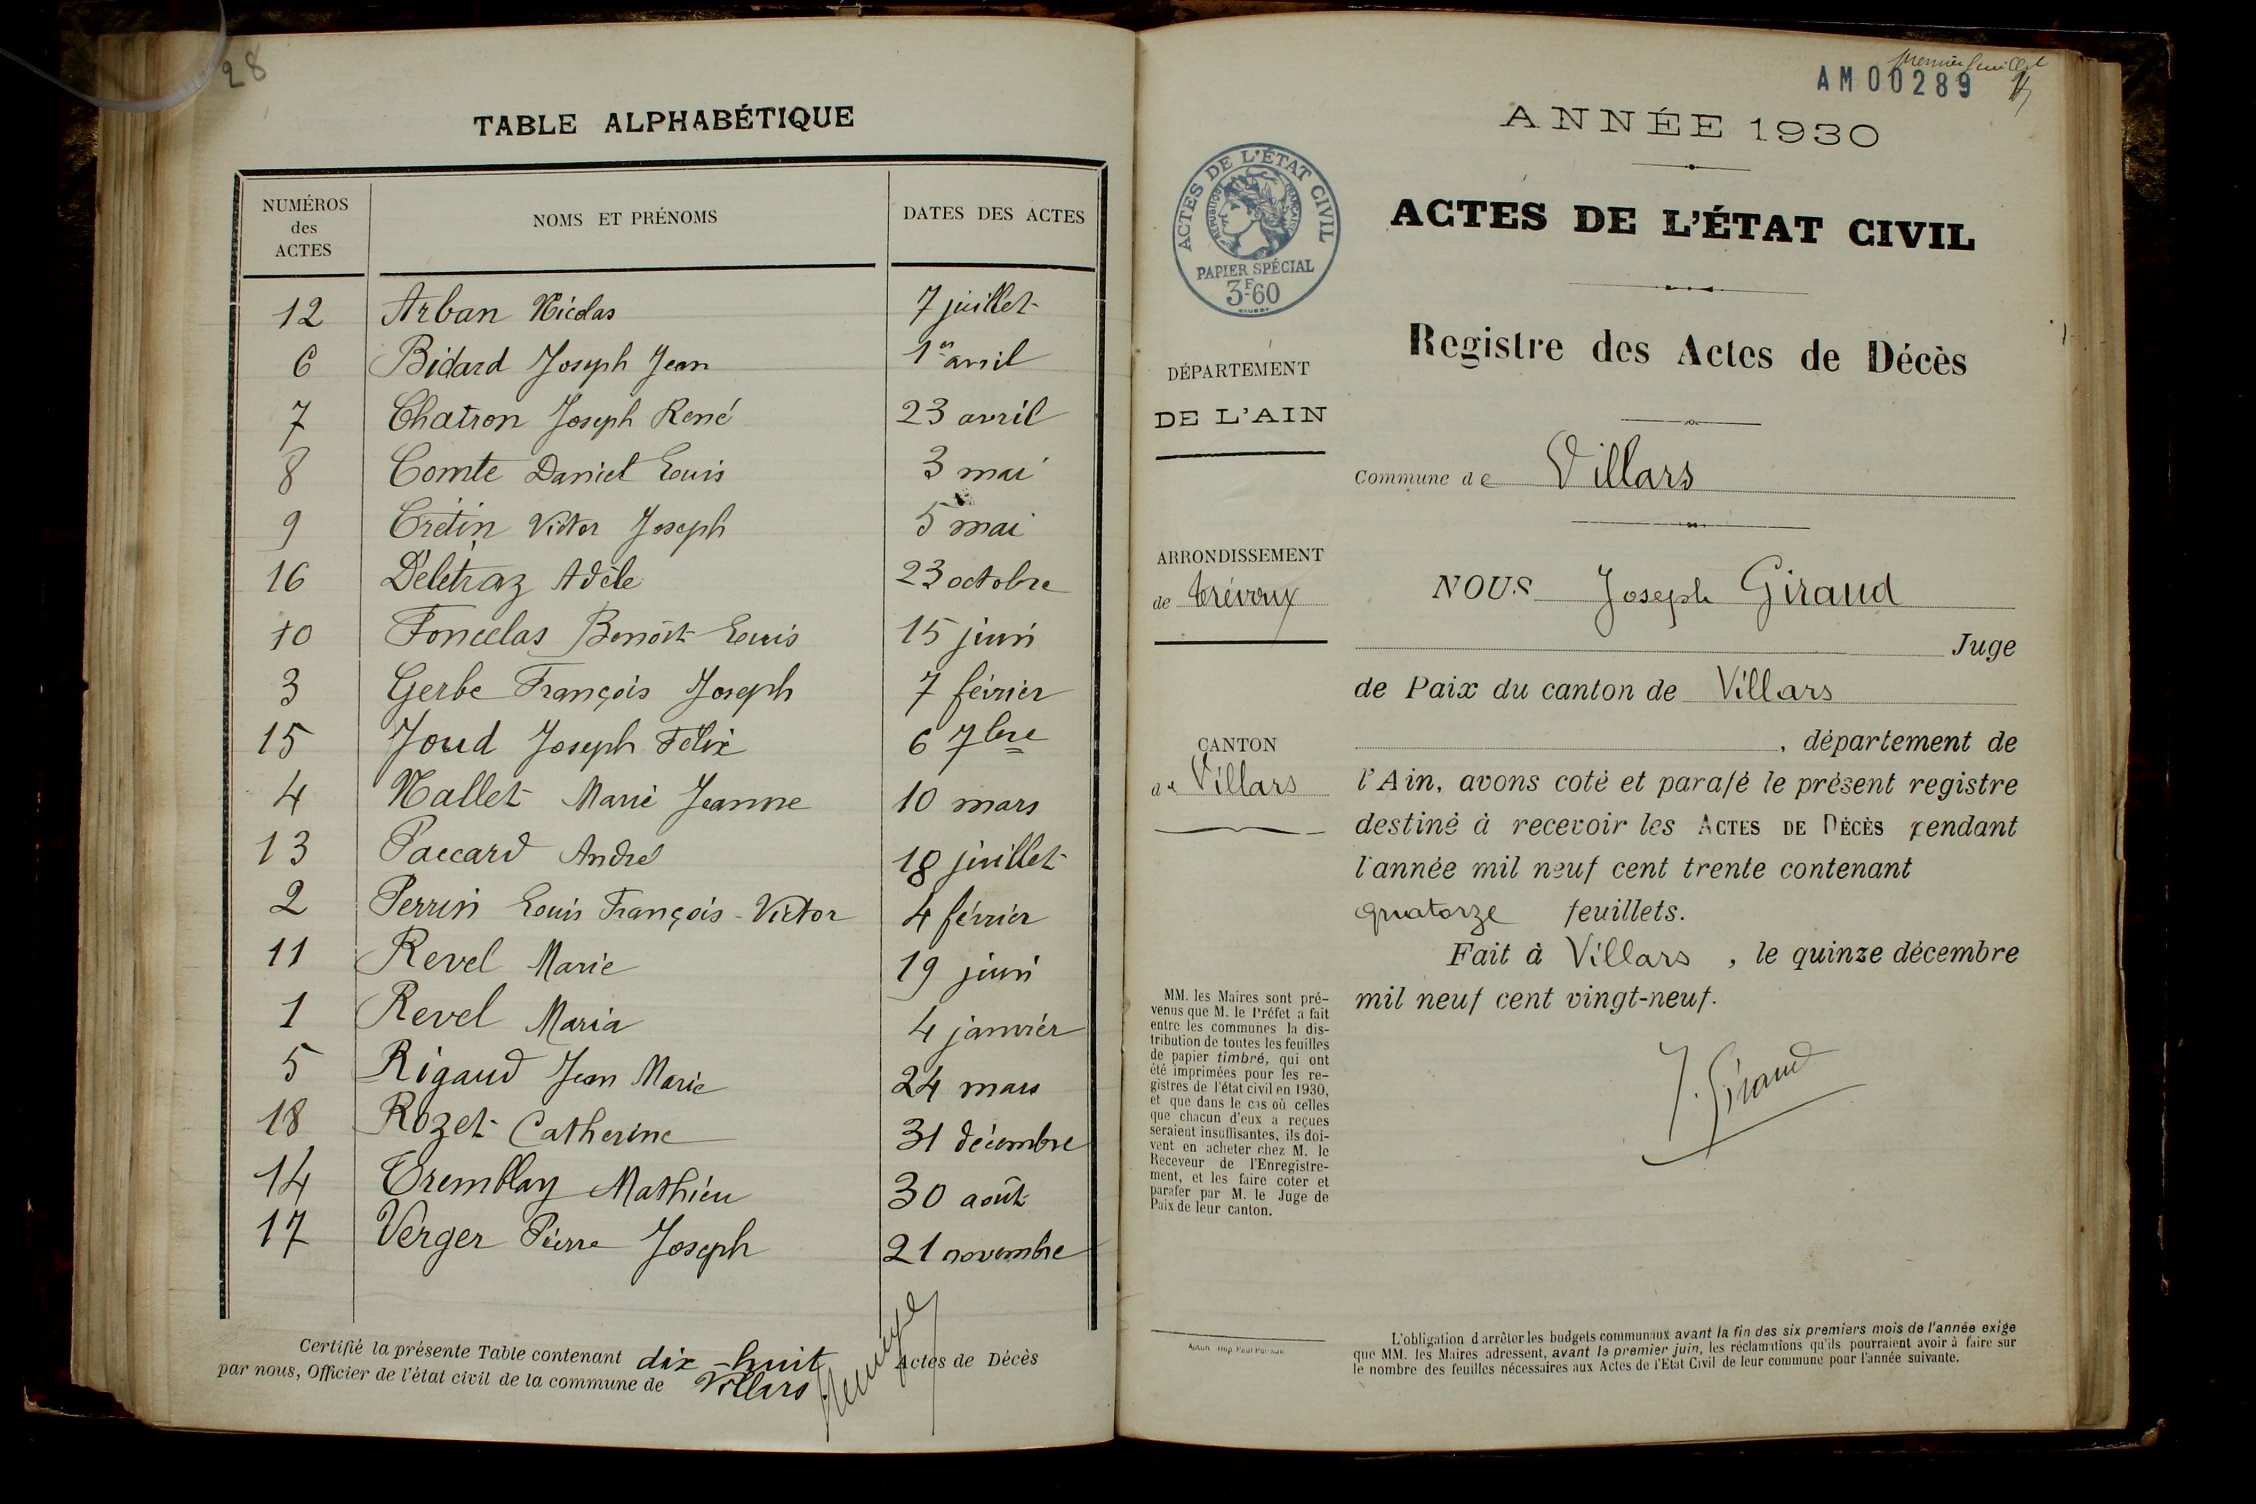 28
TABLE ALPHABÉTIQUE
NUMÉROS des ACTES
NOMS ET PRÉNOMS
DATES DES ACTES
12 Arban Nicolas 7 juillet
6 Bidard Joseph Jean 1er avril
7 Chatron Joseph René 23 avril
8 Comte Daniel Louis 3 mai
9 Crétin Victor Joseph 5 mai
16 Délétraz Adèle 23 octobre
10 Foncelas Benoît Louis 15 juin
3 Gerbe François Joseph 7 février
15 Joud Joseph Félix 6 7bre
4 Nallet Marie Jeanne 10 mars
13 Paccard André 18 juillet
2 Perrin Louis François-Victor 4 février
11 Revel Marie 19 juin
1 Revel Maria 4 janvier
5 Rigaud Jean Marie 24 mars
18 Rozet Catherine 31 décembre
14 Tremblay Mathieu 30 août
17 Verger Pierre Joseph 21 novembre
Certifié la présente Table contenant dix-huit Actes de Décès
par nous, Officier de l'état civil de la commune de Villars
premier feuillet
AM00289
ANNÉE 1930
ACTES DE L'ÉTAT CIVIL
RÉPUBLIQUE FRANÇAISE
PAPIER SPÉCIAL
3F60
ACTES DE L'ÉTAT CIVIL
Registre des Actes de Décès
DÉPARTEMENT
DE L'AIN
Commune de Villars
ARRONDISSEMENT
de Trévoux
CANTON
de Villars
NOUS Joseph Giraud
Juge
de Paix du canton de Villars
, département de
l'Ain, avons coté et parafé le présent registre
destiné à recevoir les ACTES DE DÉCÈS pendant
l'année mil neuf cent trente contenant
quatorze feuillets.
Fait à Villars , le quinze décembre
mil neuf cent vingt-neuf.
J. Giraud
MM. les Maires sont pré-
venus que M. le Préfet a fait
entre les communes la dis-
tribution de toutes les feuilles
de papier timbré, qui ont
été imprimées pour les re-
gistres de l'état civil en 1930,
et que dans le cas où celles
que chacun d'eux a reçues
seraient insuffisantes, ils doi-
vent en acheter chez M. le
Receveur de l'Enregistre-
ment, et les faire coter et
parafer par M. le Juge de
Paix de leur canton.
L'obligation d'arrêter les budgets communaux avant la fin des six premiers mois de l'année exige
que MM. les Maires adressent, avant le premier juin, les réclamations qu'ils pourraient avoir à faire sur
le nombre des feuilles nécessaires aux Actes de l'Etat Civil de leur commune pour l'année suivante.